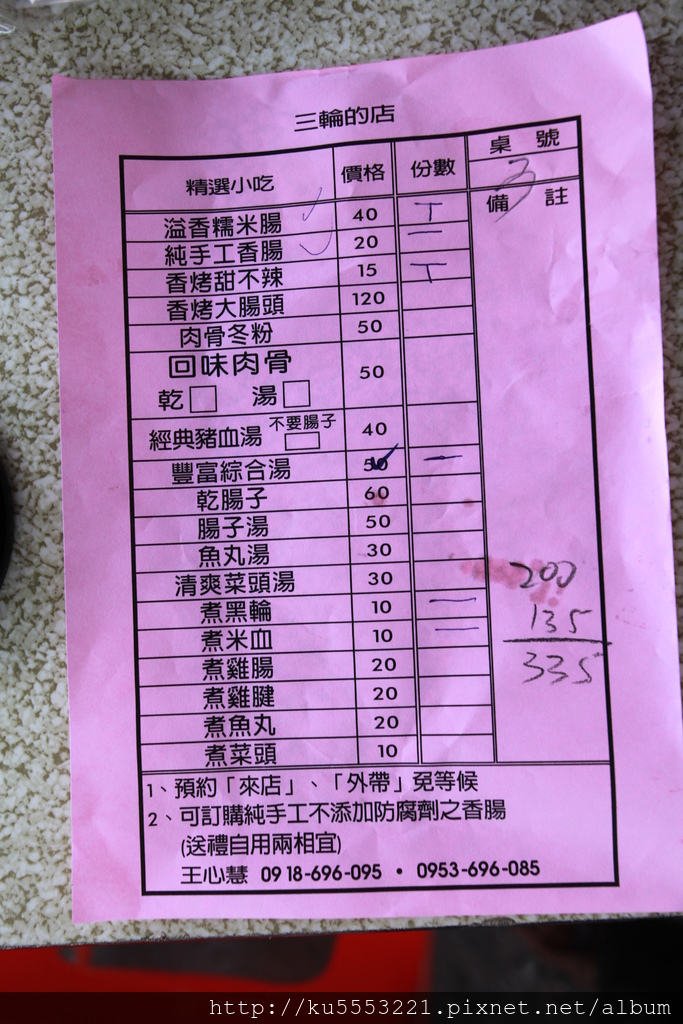 三輪的店
精選小吃 價格 份數 桌號
3
備註
溢香糯米腸 40 T
純手工香腸 20 二
香烤甜不辣 15 T
香烤大腸頭 120
肉骨冬粉 50
回味肉骨
乾□ 湯□ 50
不要腸子
經典豬血湯 □ 40
豐富綜合湯 50 一
乾腸子 60
腸子湯 50
魚丸湯 30
清爽菜頭湯 30
煮黑輪 10 二
煮米血 10 二
煮雞腸 20
煮雞腱 20
煮魚丸 20
煮菜頭 10
200
135
335
1、預約「來店」、「外帶」免等候
2、可訂購純手工不添加防腐劑之香腸
(送禮自用兩相宜)
王心慧 0918-696-095 • 0953-696-085
http://ku5553221.pixnet.net/album